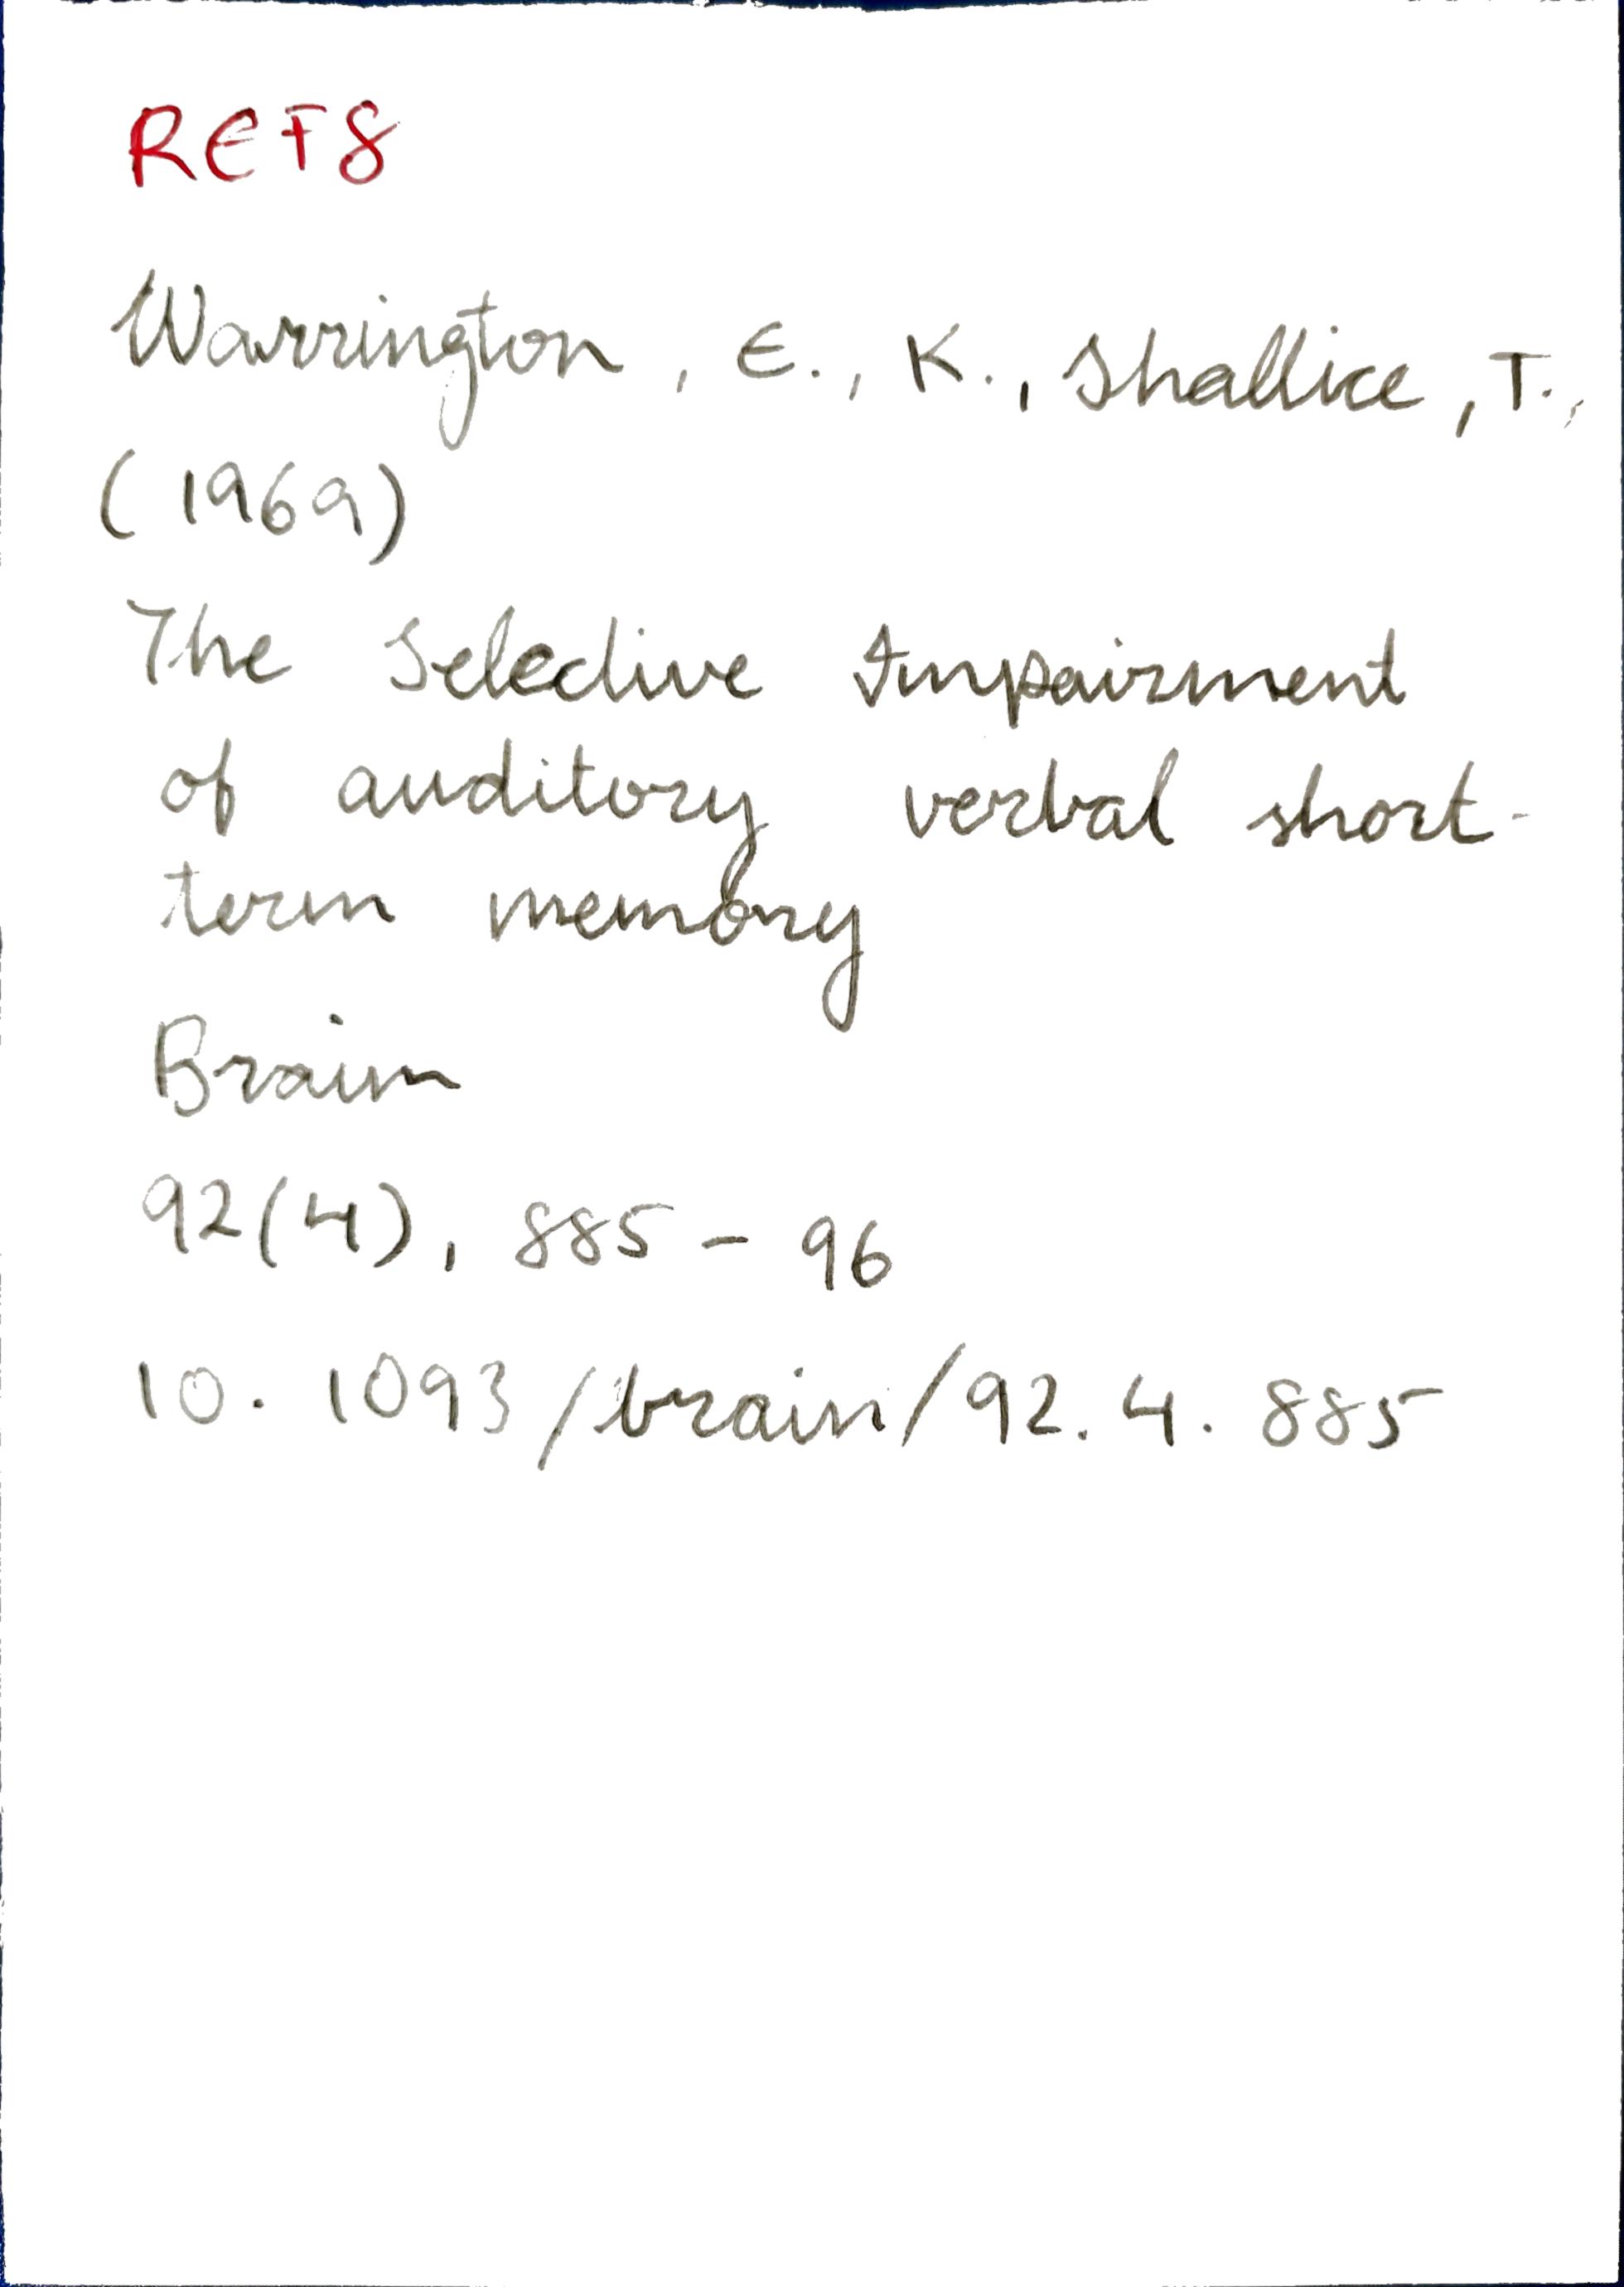 REF8
Warrington, E., K., Shallice, T.,
(1969)
The Selective Impairment
of auditory verbal short-
term memory
Brain
92(4), 885-96
10.1093/brain/92.4.885